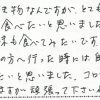 き物なんですが、とても
食べたいと思いました
味も食べてみたいです。
の方へ行った時には
たいと思いました。コロ
ますが頑張って下さい